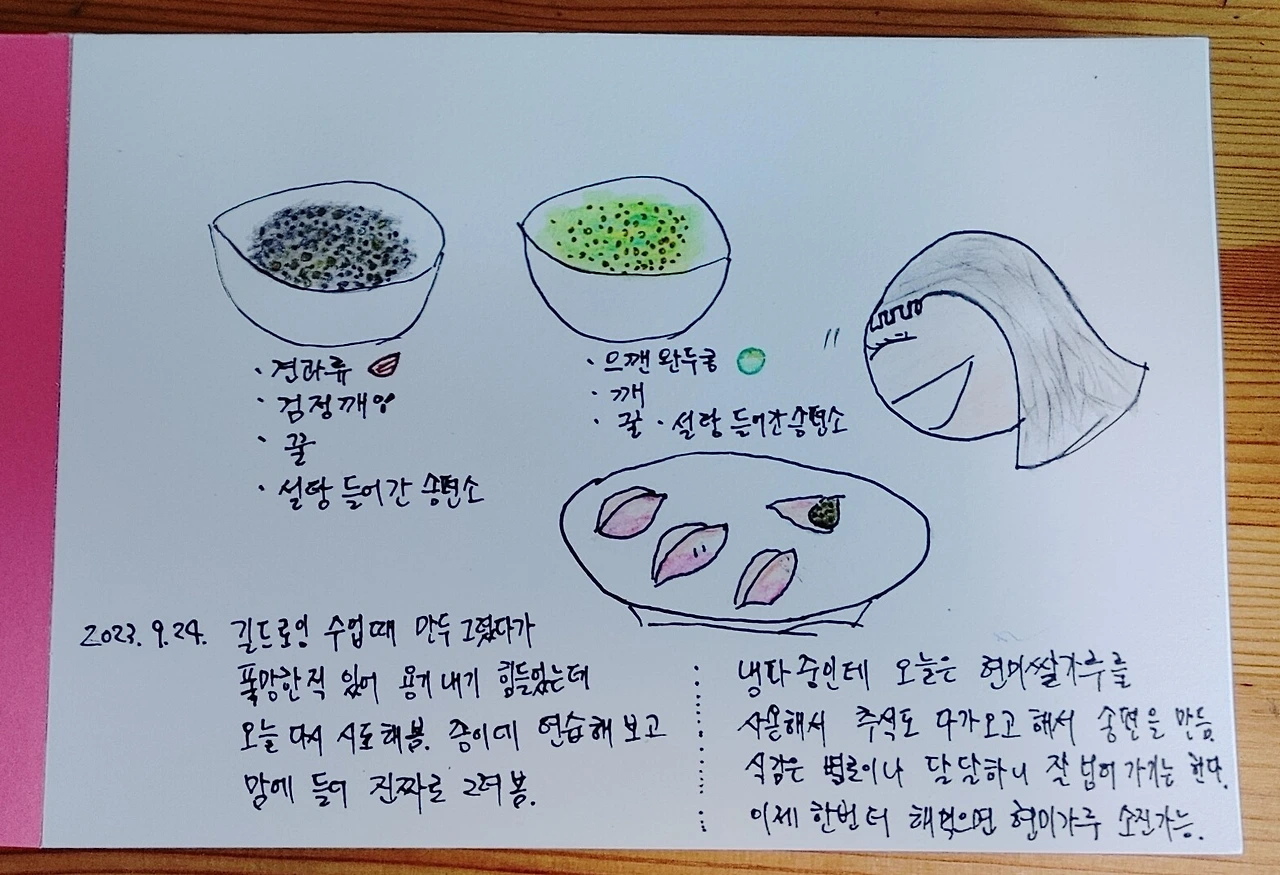 · 견과류
· 검정깨
· 꿀
· 설탕 들어간 송편소
· 으깬 완두콩
· 깨
· 꿀 · 설탕 들어간 송편소
2023. 9. 24. 길드로잉 수업때 만두 그렸다가
폭망한 적 있어 용기내기 힘들었는데
오늘 다시 시도해봄. 종이에 연습해 보고
맘에 들어 진짜로 그려봄.
냉파 중인데 오늘은 현미쌀가루를
사용해서 추석도 다가오고 해서 송편을 만듦.
식감은 별로이나 달달하니 잘 넘어 가기는 한다.
이제 한번 더 해먹으면 현미가루 소진가능.